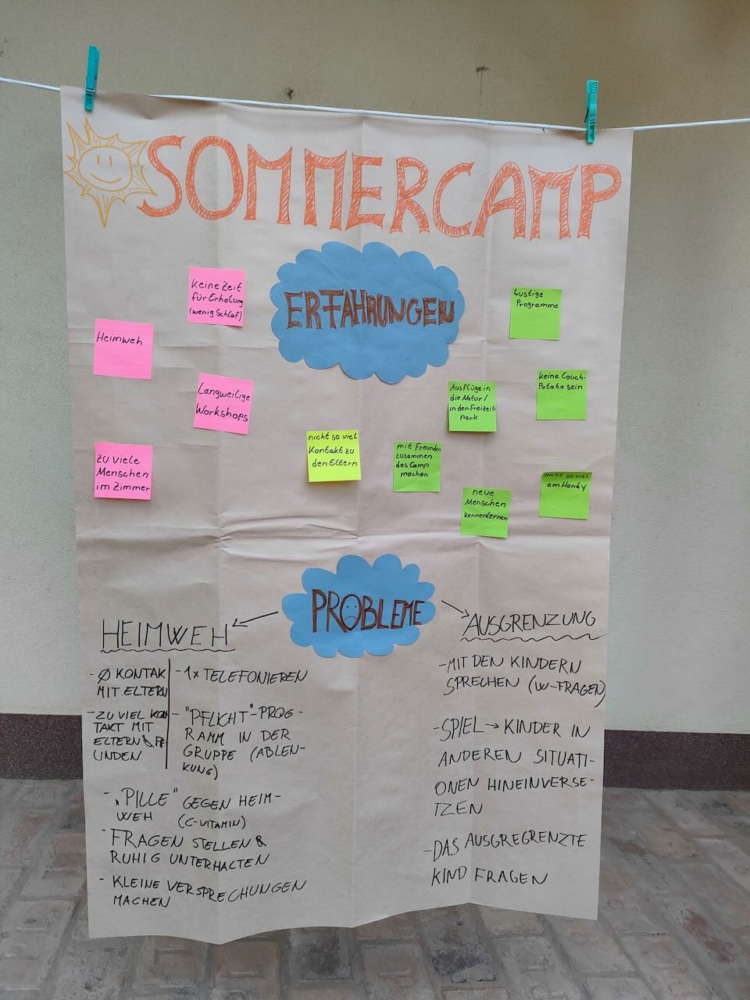 SOMMERCAMP
ERFAHRUNGEN
Keine Zeit
für Erholung
(wenig Schlaf)
Heimweh
Langweilige
Workshops
zu viele
Menschen
im Zimmer
nicht so viel
Kontakt zu
den Eltern
Lustige
Programme
keine Couch-
Potato sein
Ausflüge in
die Natur/
in den Freizeit
park
mit Freunden
zusammen
das Camp
machen
neue
Menschen
kennenlernen
nicht so viel
am Handy
PROBLEME
HEIMWEH
- Ø KONTAK
MIT ELTERN
- ZU VIEL KON
TAKT MIT
ELTERN & FRE
UNDEN
- 1x TELEFONIEREN
- "PFLICHT"-PROG-
RAMM IN DER
GRUPPE (ABLEN-
KUNG)
- "PILLE" GEGEN HEIM-
WEH (C-VITAMIN)
- FRAGEN STELLEN &
RUHIG UNTERHALTEN
- KLEINE VERSPRECHUNGEN
MACHEN
AUSGRENZUNG
- MIT DEN KINDERN
SPRECHEN (W-FRAGEN)
- SPIEL → KINDER IN
ANDEREN SITUATI-
ONEN HINEINVERSE-
TZEN
- DAS AUSGREGRENZTE
KIND FRAGEN